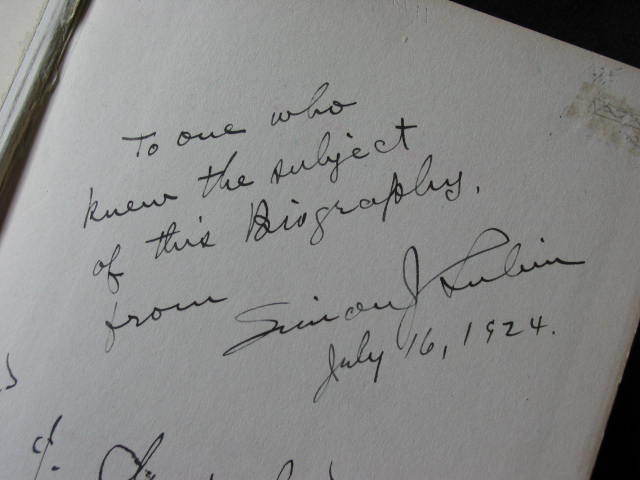 To one who
knew the subject
of this Biography,
from
Simon J Lubin
July 16, 1924.